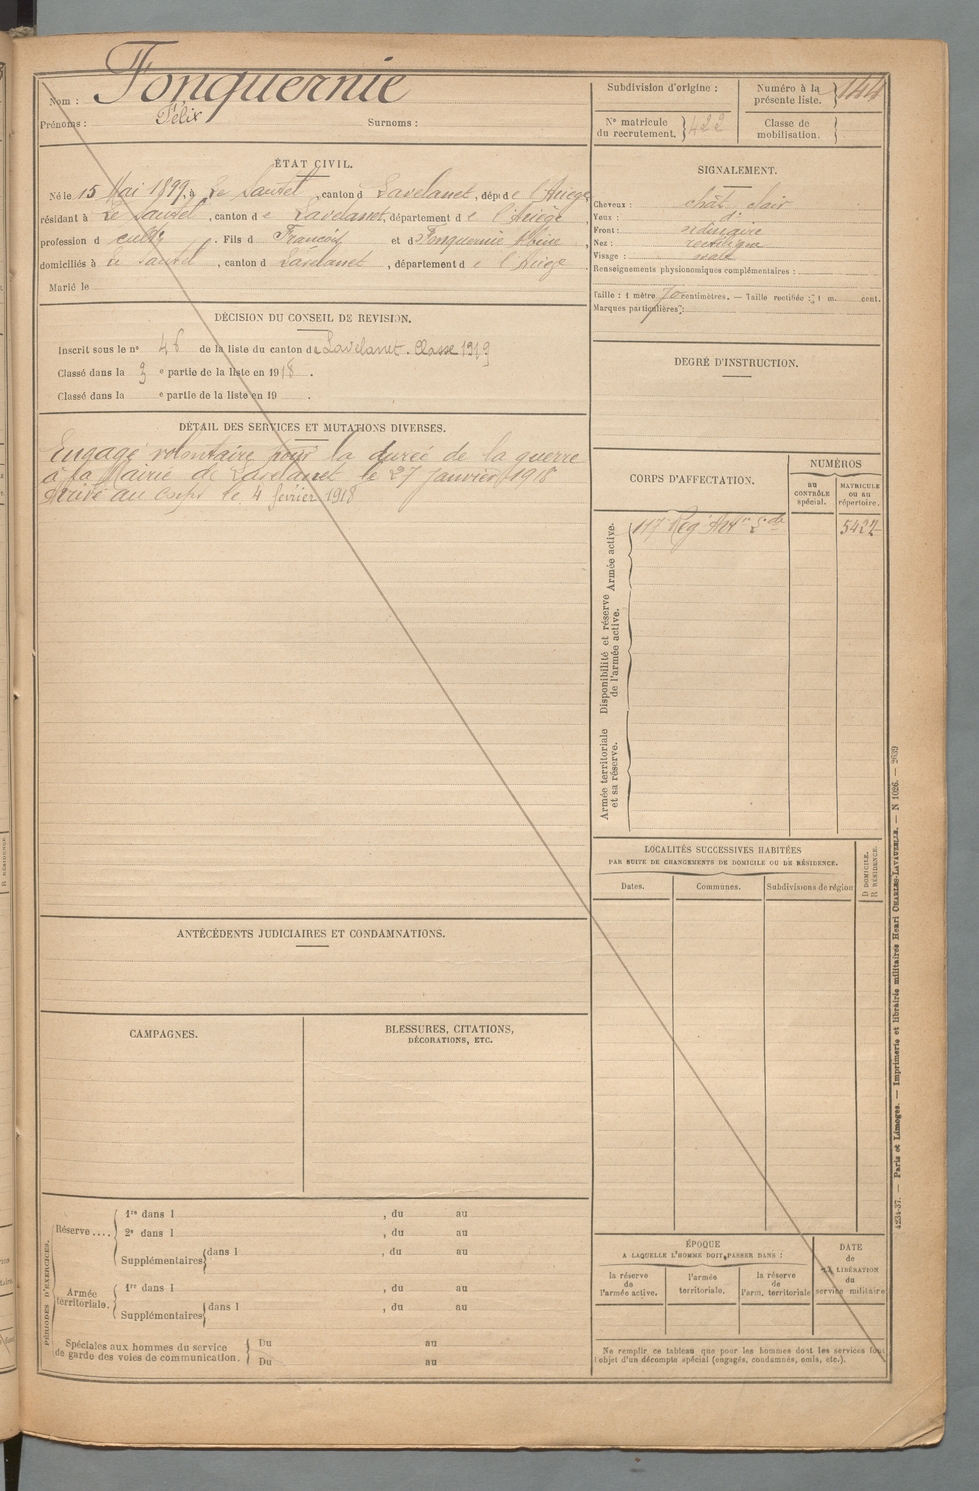 Nom : Fonquernie
Prénoms : Félix Surnoms :
ÉTAT CIVIL.
Né le 15 Mai 1899, à Le Sautel, canton d Lavelanet, dép. de l'Ariège,
résidant à Le Sautel, canton de Lavelanet, département de l'Ariège,
profession d cultr. Fils d François et d Fonquernie
domiciliés à Le Sautel, canton d Lavelanet, département de l'Ariège.
Marié le
DÉCISION DU CONSEIL DE REVISION.
Inscrit sous le nº 46 de la liste du canton de Lavelanet. Classe 1919
Classé dans la 3 e partie de la liste en 1918.
Classé dans la e partie de la liste en 19 .
DÉTAIL DES SERVICES ET MUTATIONS DIVERSES.
Engagé volontaire pour la durée de la guerre
à la Mairie de Lavelanet le 27 janvier 1918
Arrivé au corps le 4 février 1918
ANTÉCÉDENTS JUDICIAIRES ET CONDAMNATIONS.
CAMPAGNES.
BLESSURES, CITATIONS,
DÉCORATIONS, ETC.
PÉRIODES D'EXERCICES.
Réserve ....
1re dans l , du au
2e dans l , du au
Supplémentaires dans l , du au
Armée territoriale.
1re dans l , du au
Supplémentaires dans l , du au
Spéciales aux hommes du service
de garde des voies de communication.
Du au
Du au
Subdivision d'origine :
Numéro à la
présente liste. 144
Nº matricule
du recrutement. 422
Classe de
mobilisation.
SIGNALEMENT.
Cheveux : chât clair
Yeux : dº
Front : ordinaire
Nez : rectiligne
Visage : ovale
Renseignements physionomiques complémentaires :
Taille : 1 mètre 70 centimètres. — Taille rectifiée : 1 m. cent.
Marques particulières :
DEGRÉ D'INSTRUCTION.
CORPS D'AFFECTATION.
NUMÉROS
au
CONTRÔLE
spécial.
MATRICULE
ou au
répertoire.
Armée active.
117 Rég. Artie Lde
5422
Disponibilité et réserve
de l'armée active.
Armée territoriale
et sa réserve.
LOCALITÉS SUCCESSIVES HABITÉES
PAR SUITE DE CHANGEMENTS DE DOMICILE OU DE RÉSIDENCE.
Dates.
Communes.
Subdivisions de région
D DOMICILE.
R RÉSIDENCE.
ÉPOQUE
A LAQUELLE L'HOMME DOIT PASSER DANS :
la réserve
de
l'armée active.
l'armée
territoriale.
la réserve
de
l'arm. territoriale
DATE
de
LA LIBÉRATION
du
service militaire
Ne remplir ce tableau que pour les hommes dont les services font
l'objet d'un décompte spécial (engagés, condamnés, omis, etc.).
4234-37. — Paris et Limoges. — Imprimerie et librairie militaires Henri CHARLES-LAVAUZELLE. — N 1026. — 2639